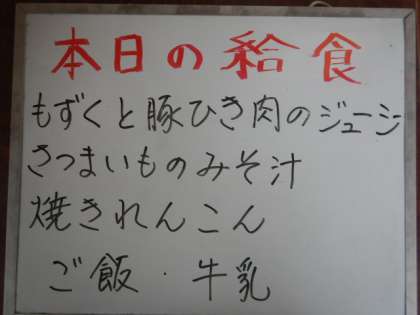 本日の給食
もずくと豚ひき肉のジューシー
さつまいものみそ汁
焼きれんこん
ご飯・牛乳